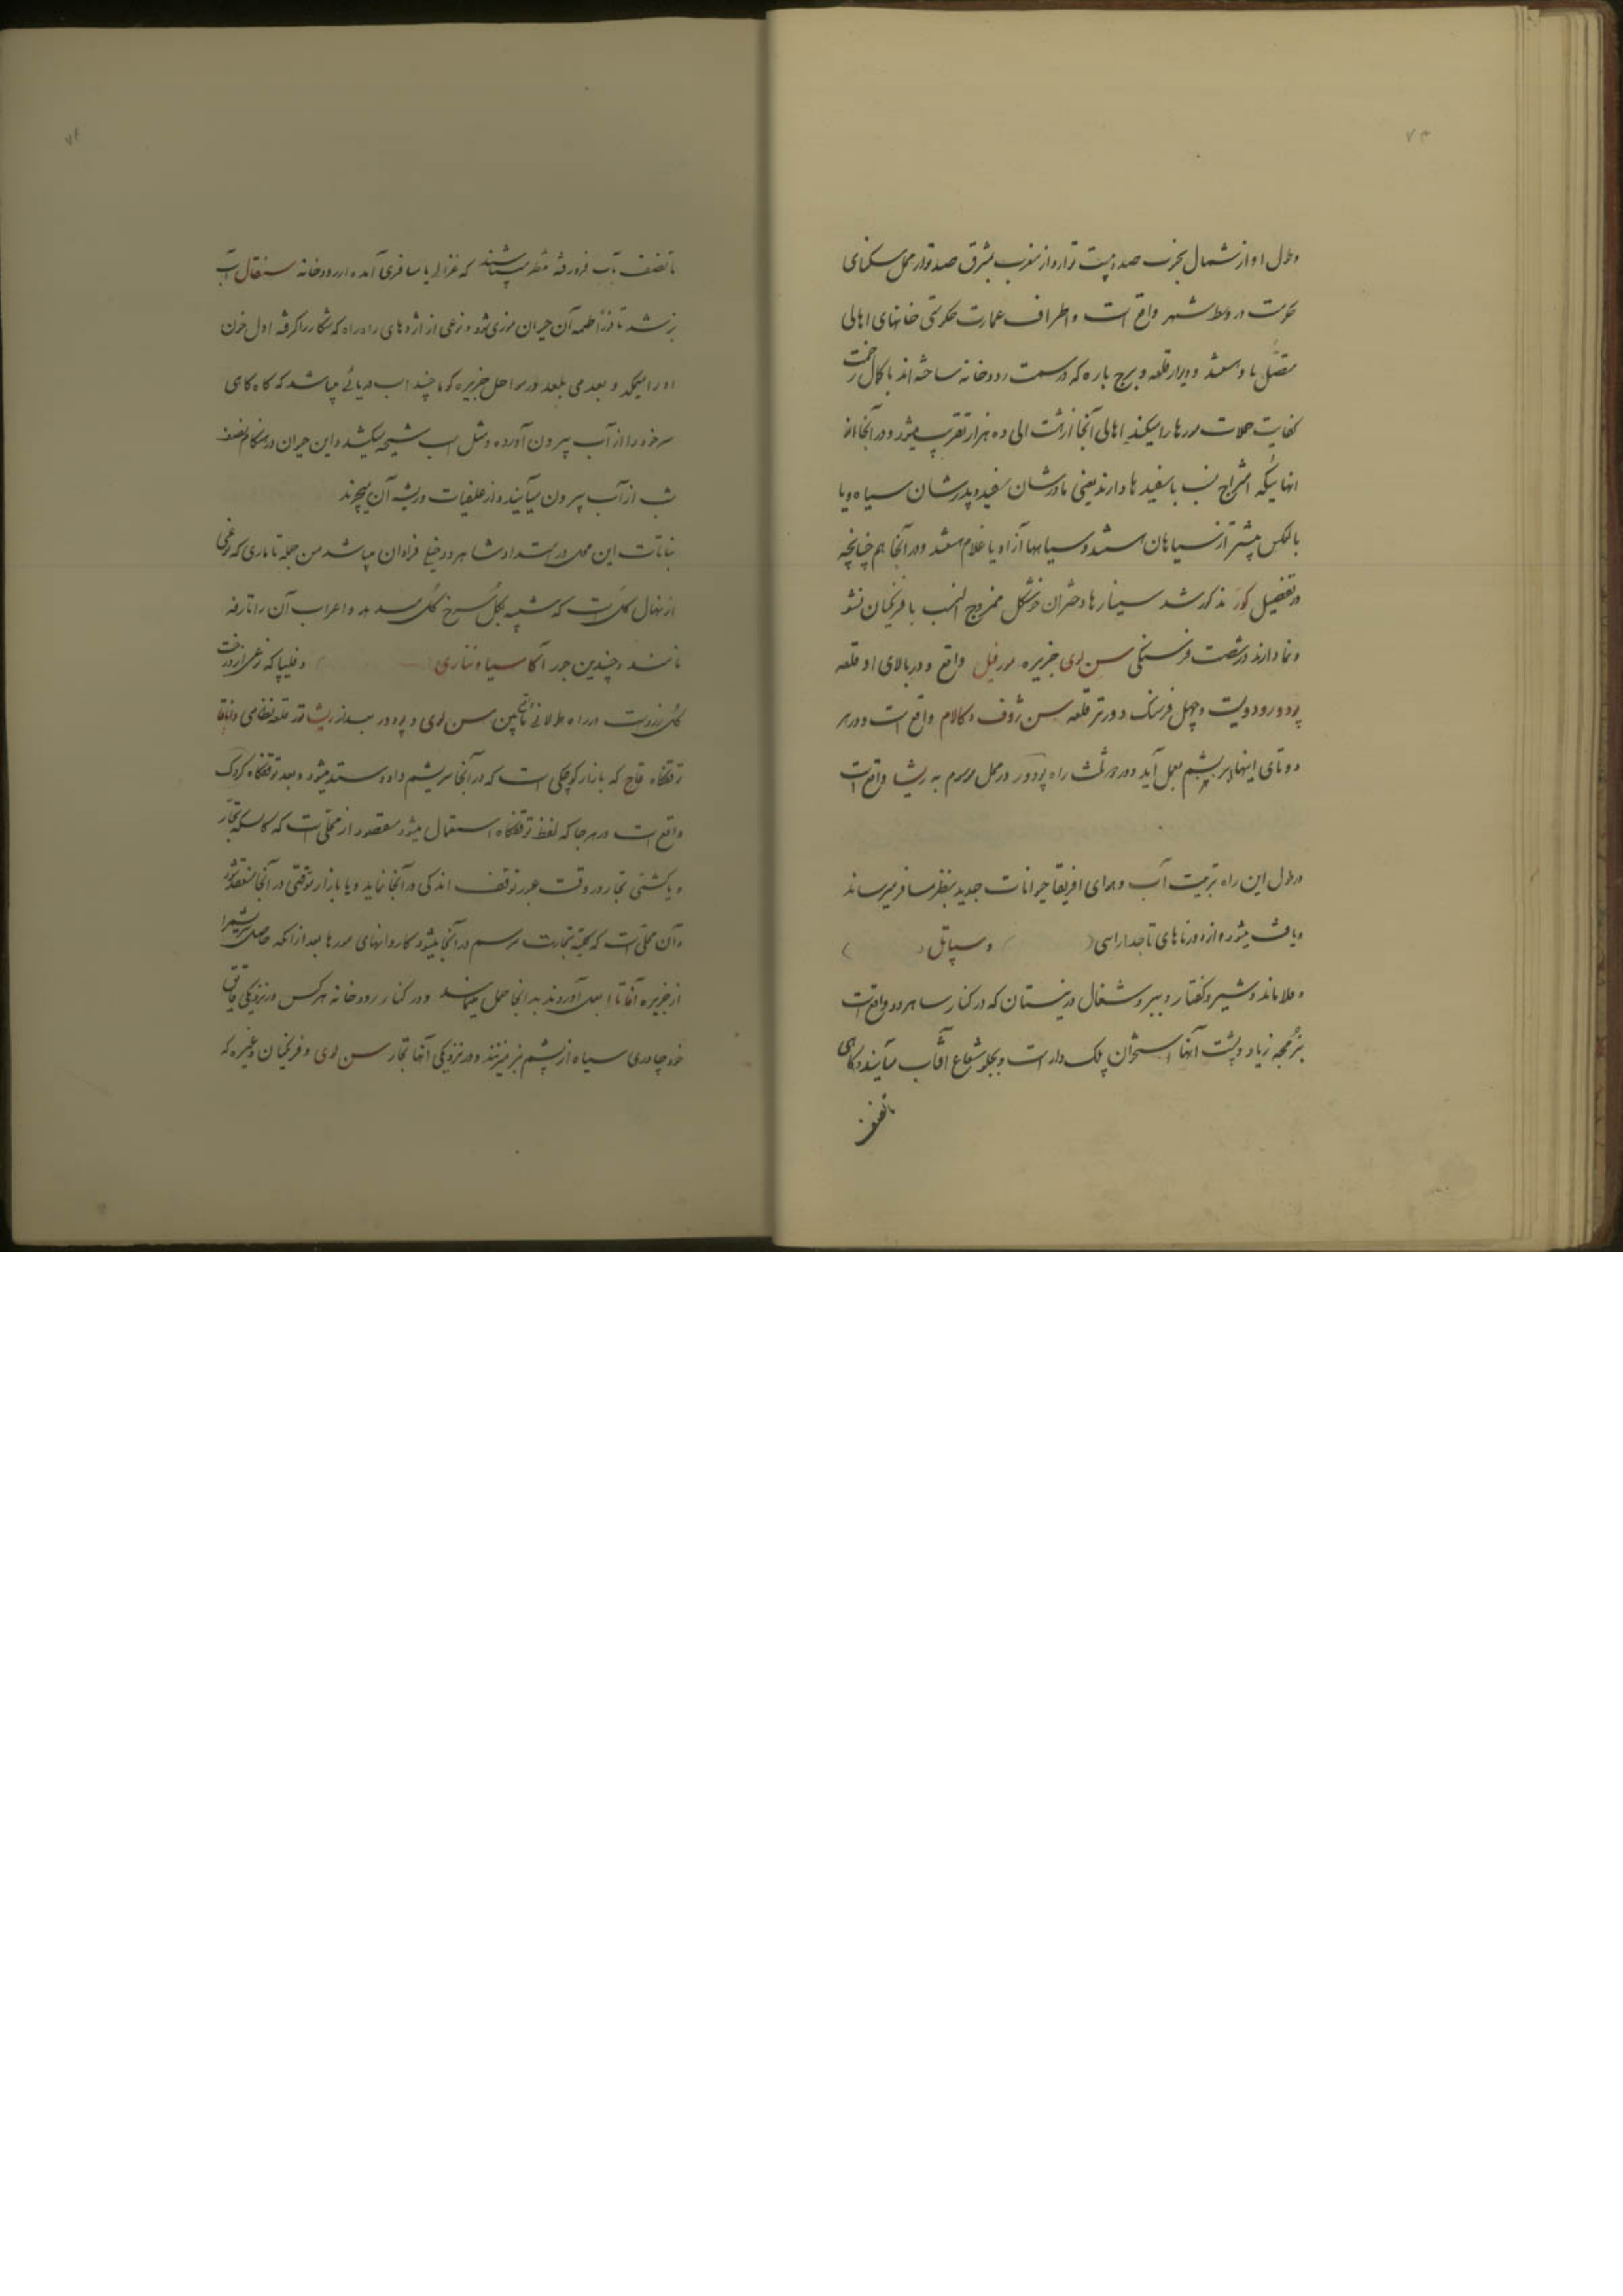 ۷۳
و طول او از شمال بجنوب صد و بیست تواز و از مغرب بمشرق صد تواز محل سکنای
حکومت در وسط شهر واقع است و اطراف عمارت حکومتی خانهای اهالی
متصل باو هستند و دیوار قلعه و برج باره که در سمت رودخانه ساخته‌اند با کمال
کفایت حملات مورها را میکند اهالی آنجا از هشت الی ده هزار تقریب میشود و در آنجا
انهائیکه امتزاج نسب با سفیدها دارند یعنی مادرشان سفید و پدرشان سیاه و یا
بالعکس بیشتر از سیاهان هستند و سیاهها آزاد یا غلام هستند و در آنجا هم چنانچه
در تفصیل کور مذکور شد سینارها دختران خوشگل ممزوج النسب با فرنگیان نشو
و نما دارند در شصت فرسنگی سن لوی جزیره مورفیل واقع و در بالای او قلعه
پودور و دویست و چهل فرسنگ دورتر قلعه سن ژوف و کالام واقع است و در هر
دوتای اینها بعمل آید و در ثلث راه پودور در محل موسوم به ریشا واقع است
در طول این راه تربیت آب و هوای افریقا حیوانات جدید بنظر مسافر میرساند
و یافت میشود از درناهای تاجدار اسی ( ) و سپاتل ( )
و فلاماند و شیر و کفتار و ببر و شغال در نیستان که در کنار ساهرود واقع است
بزمجه زیاد و پشت آنها استخوان پلک دار است و بجلو شعاع آفتاب میآیند و گاهی
تا نصف
۷۴
تا نصف بآب فرو رفته منتظر میباشند که غزالی یا مسافری آمده از رودخانه سنقال آب
نوشد تا فوراً طعمه آن حیوان موذی شود و نوعی از اژدهای راه راه که شکار را گرفته اول خون
او را میمکد و بعد می بلعد در سواحل جزیره کویا چند اسب دریائی میباشد که گاه گاهی
سر خود را از آب بیرون آورده و مثل اسب شیهه میکشد و این حیوان در هنگام نصف
شب از آب بیرون میآیند و از علفیات و ریشه آن میچرند
نباتات این محل در امتداد ساهرود خیلی فراوان میباشد من جمله تاماری که نوعی
از نهال گل است که شبیه بگل سرخ گل میدهد و اعراب آن را تارفه
نامند و چندین جور آکاسیا و نناری ( ) و فلیپا که نوعی از درخت
گل زرد است در راه طولانی مابین سن لوی و پودور بعد از ریشا تور قلعه نظامی داناقا
توقفگاه قاح که بازار کوچکی است که در آنجا سریشم داد و ستد میشود و بعد توقفگاه کردک
واقع است در هر جا که لفظ توقفگاه استعمال میشود مقصود از محلی است که کالسکه تجار
و یا کشتی تجار در وقت عبور توقف اندکی در آنجا نماید و یا بازار موقتی در آنجا منعقد شود
و آن محلی است که بجهة تجارت مرسم در آنجا میشود کاروانهای مورها بعد از آنکه حاصل سریشم را
از جزیره آفاتا بعمل آوردند بدانجا حمل مینمایند و در کنار رودخانه هر کس در نزدیکی قایق
خود چادری سیاه از پشم بز میزنند و در نزدیکی آنها تجار سن لوی و فرنگیان و غیره که